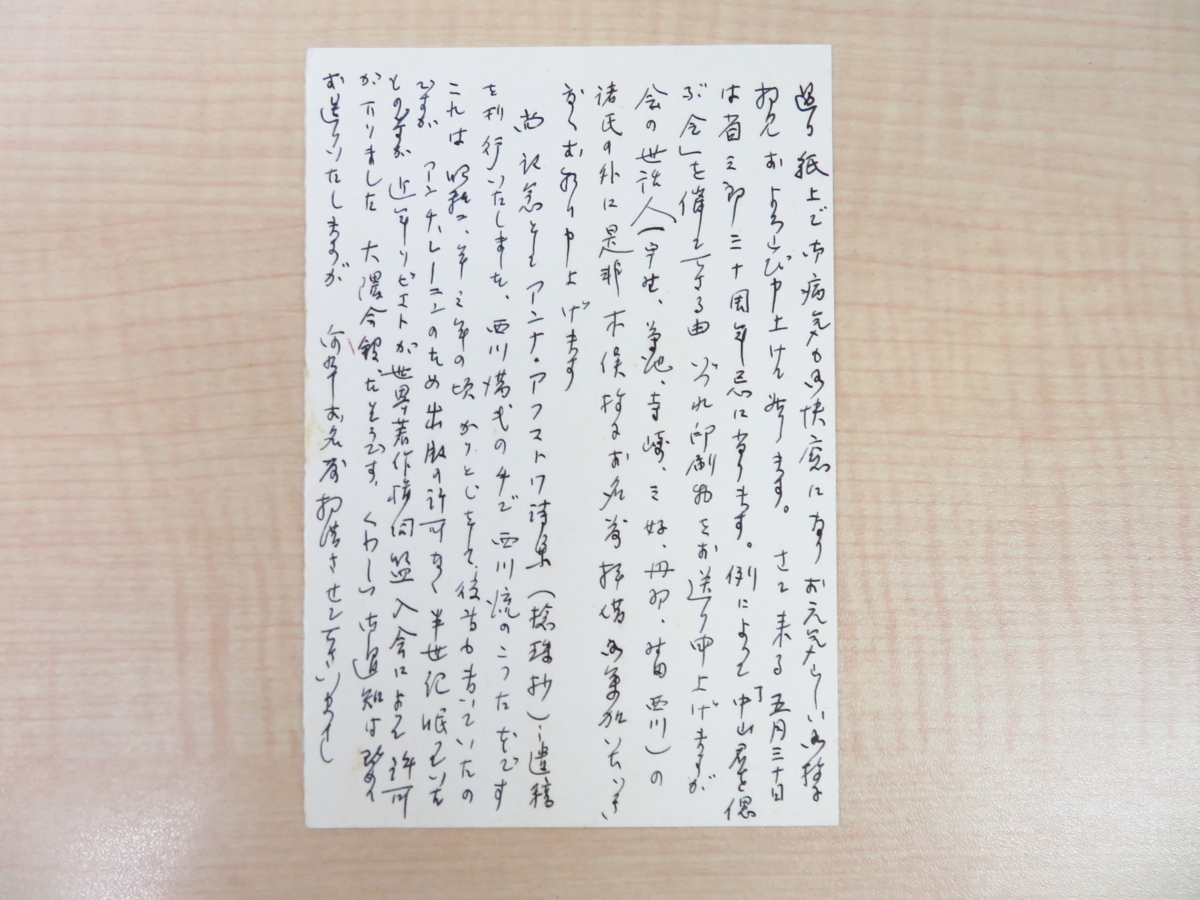 過日紙上で御病気も御快癒になり お元気らしい御様子
拝見 およろこび申上げて居ります。 さて来る五月三十日
は省三郎三十周年忌に当ります。例によって中山君を偲
ぶ会」を催して下さる由 いづれ印刷物をお送り申上げますが
会の世話人(宇生、菊池、寺崎、三好、丹羽、 西川)の
諸氏の外に是非木俣様のお名前拝借 参加いたゞき
度くお願い申上げます
尚記念としてアンナ・アフマトワ詩集(捻珠抄):遺稿
を刊行いたします、西川満氏の手で西川流のこった本です
これは昭和二、年三年の頃 かりとじをして、後書も書いていたの
ですが アンチ、レーニンのため出版の許可なく半世紀眠っていた
とのですが 近年ソビエトが世界著作権同盟入会によって許可
が下りました 大隈会館、だそうです、くわしい御通知は改めて
お送りいたしますが 何卒お名前拝借させて下さいませ